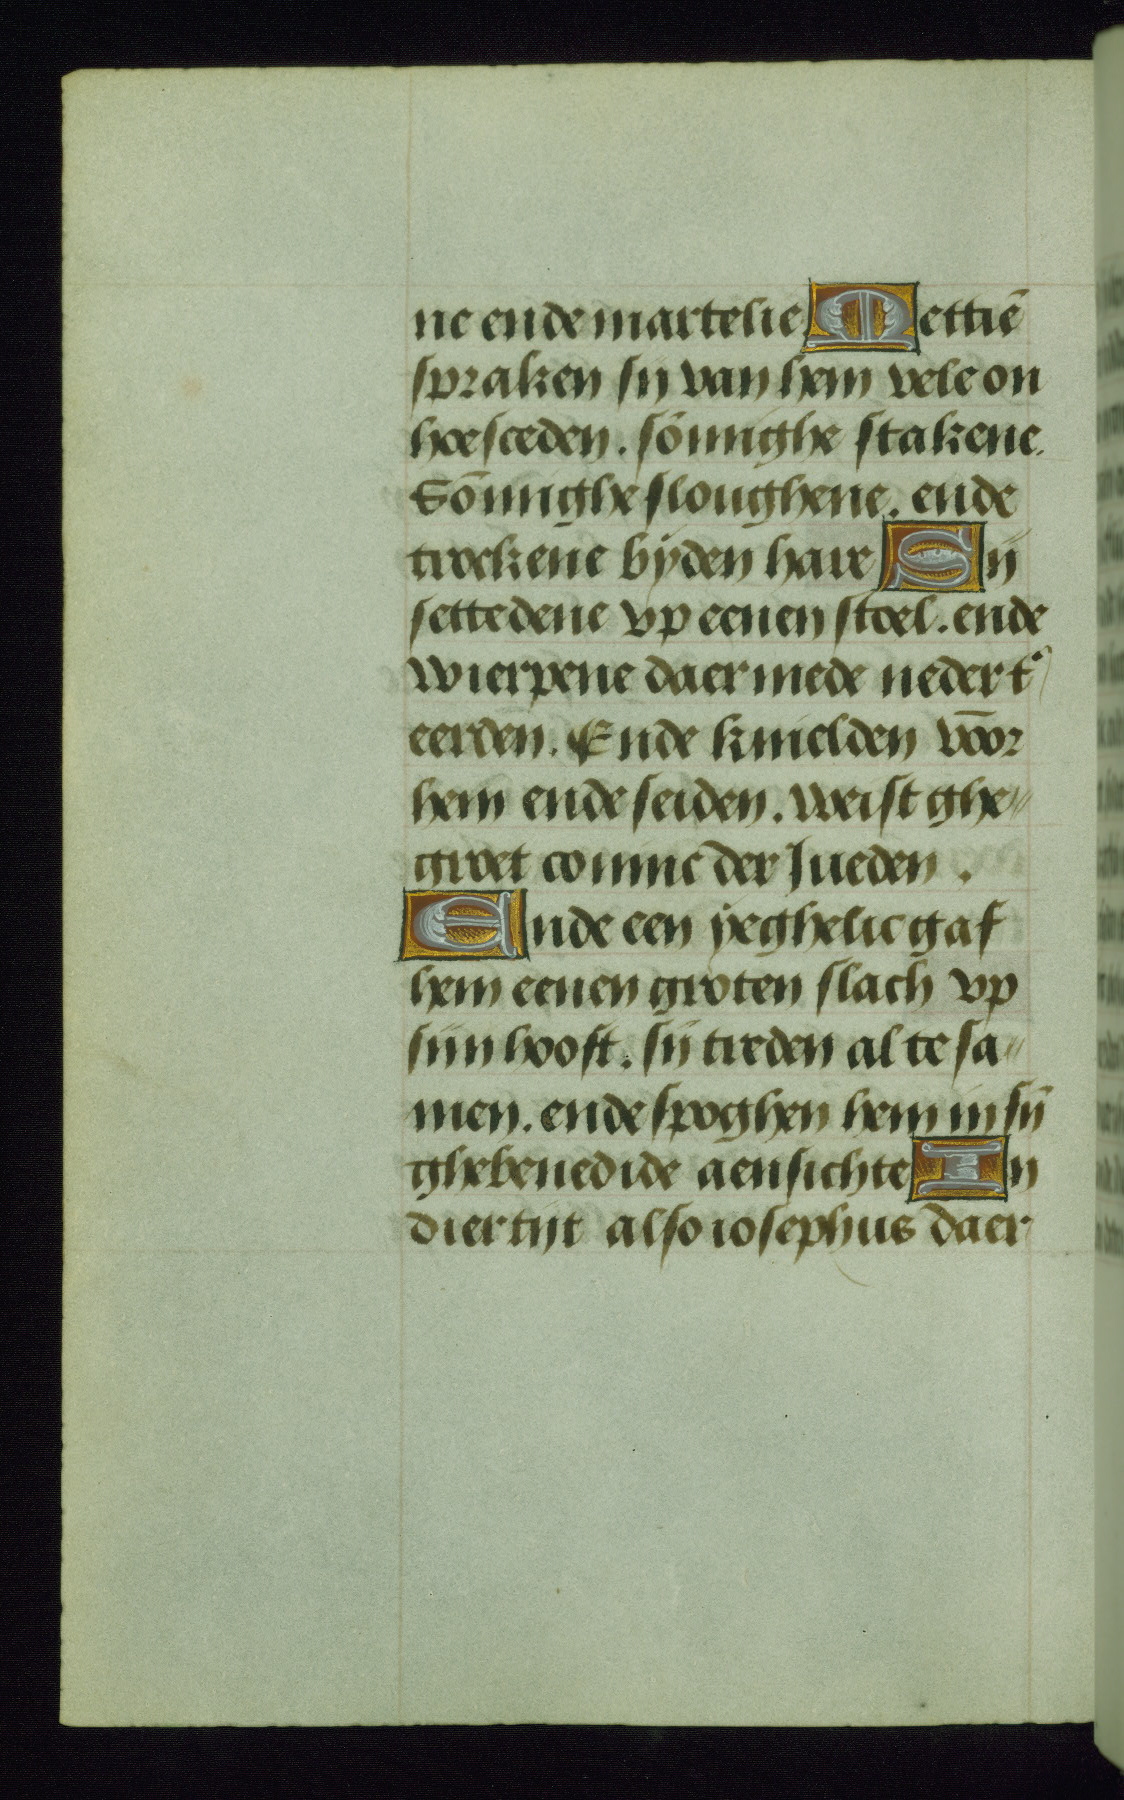 ne ende martelie Mettiē
spraken sij van hem vele on
hoesceden. sōmighe stakene.
Sōmighe sloughene. ende
trockene byden hare Sij
settedene vp eenen stoel. ende
wierpene daer mede neder t'
eerden. Ende knielden vōor
hem ende seiden. Weist ghe〃
groet coninc der Jueden.
Ende een yeghelic gaf
hem eenen groten slach vp
sijn hooft. sij treden al te sa〃
men. ende spoghen hem in sij̄
ghebenedide aensichte In
dier tijt also iosephus daer